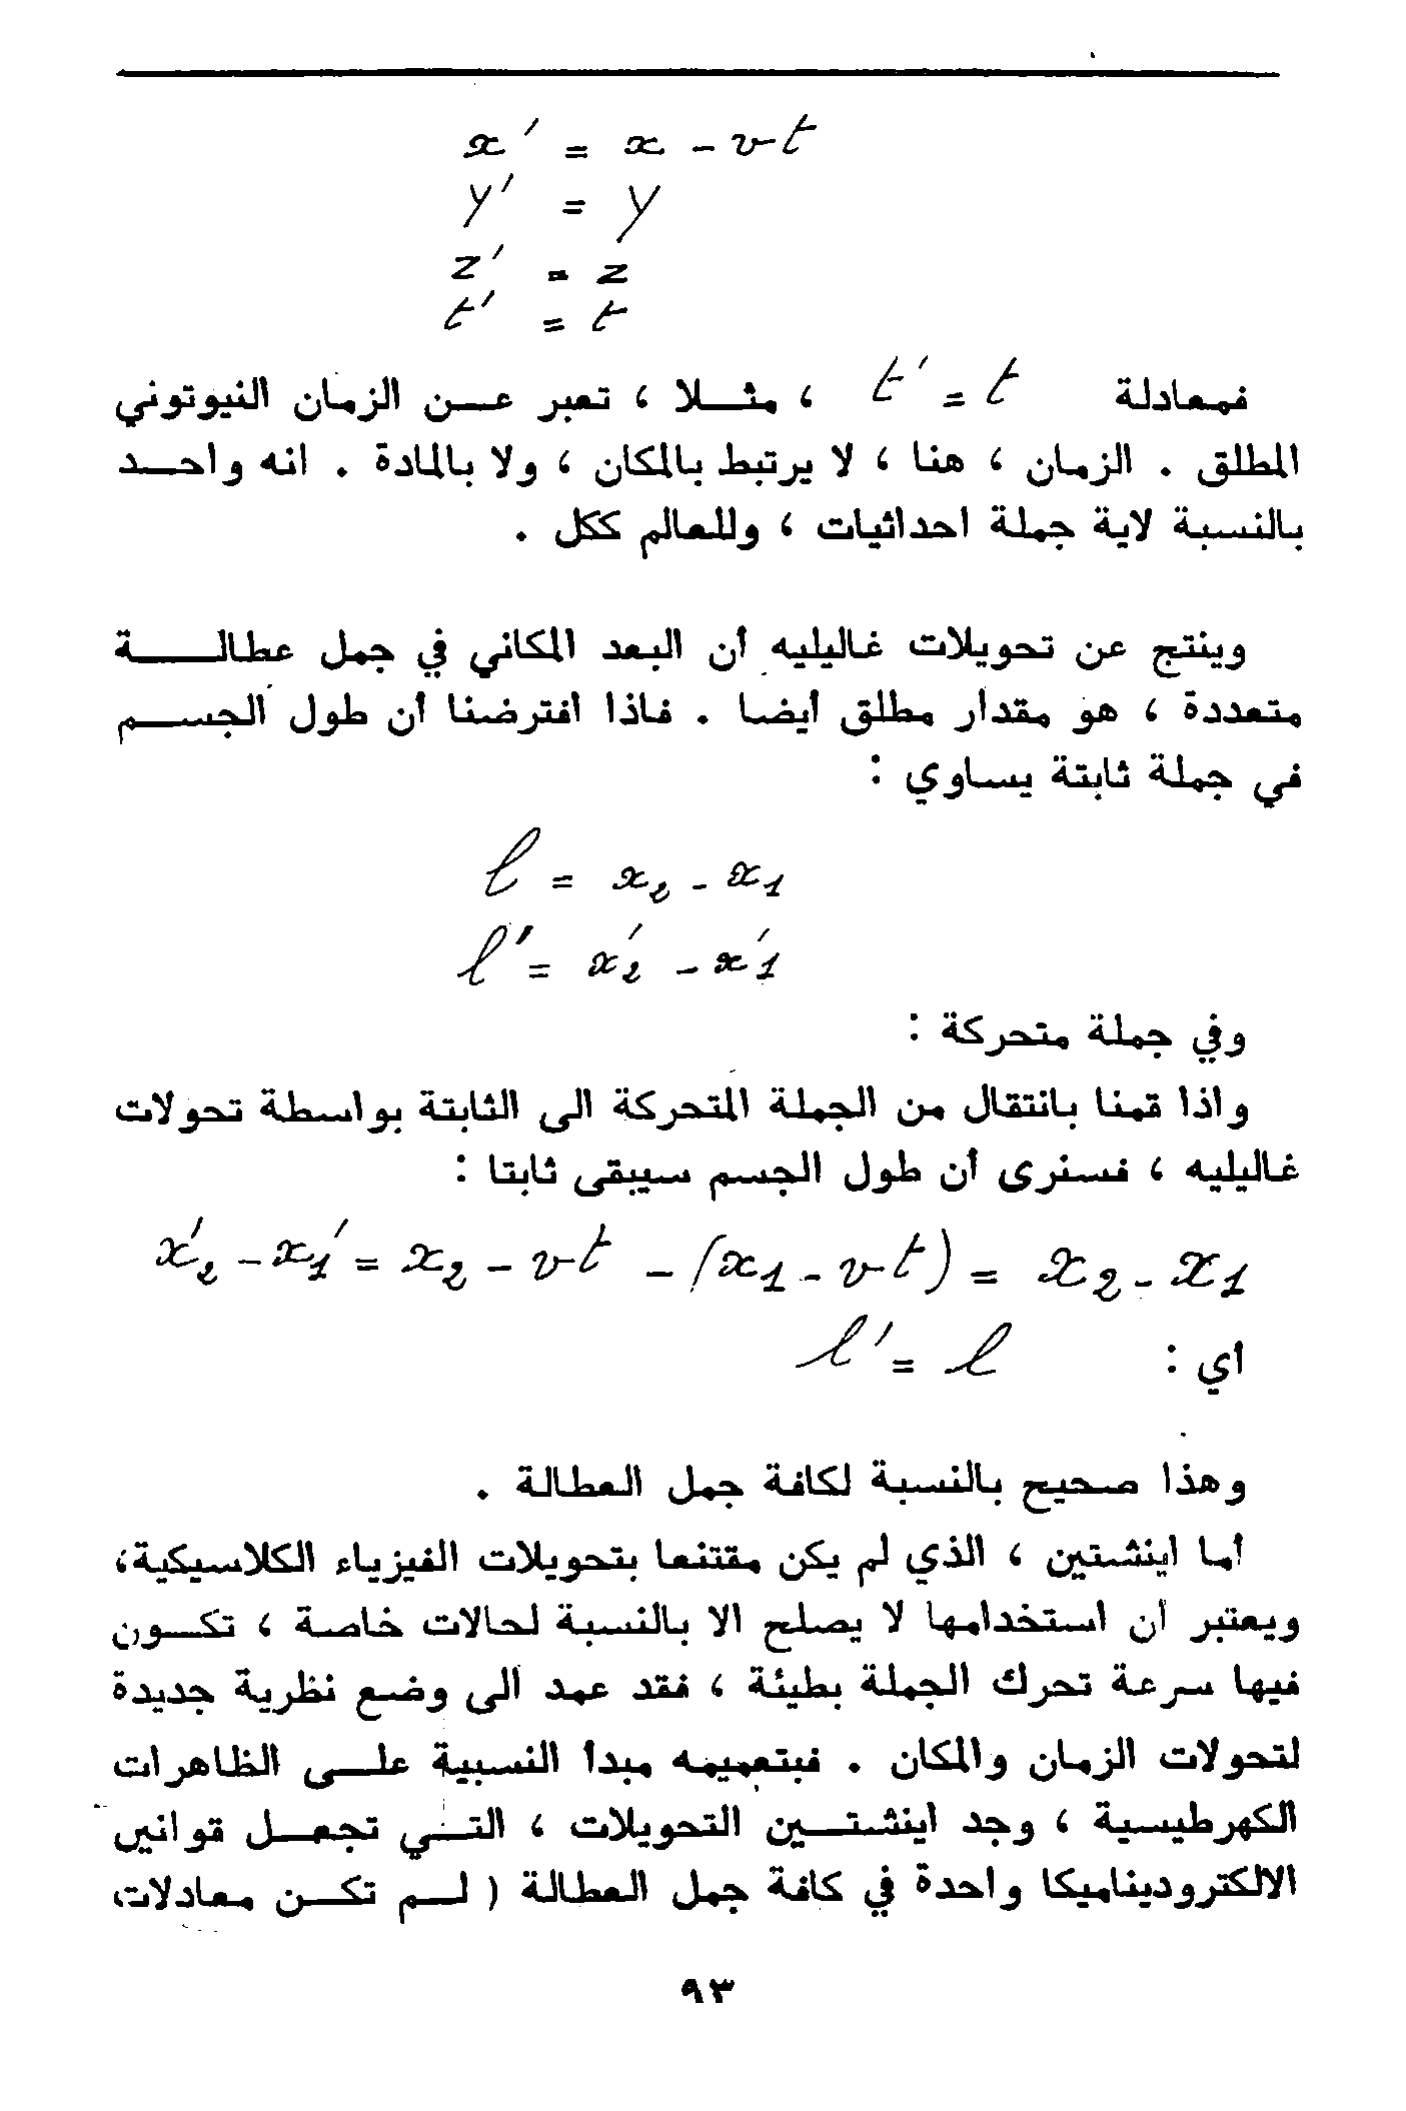 x' = x - vt
y' = y
z' = z
t' = t
فمعادلة t' = t ، مثـلا ، تعبر عـن الزمان النيوتوني
المطلق . الزمان ، هنا ، لا يرتبط بالمكان ، ولا بالمادة . انه واحـد
بالنسبة لاية جملة احداثيات ، وللعالم ككل .
وينتج عن تحويلات غاليليه أن البعد المكاني في جمل عطالـــة
متعددة ، هو مقدار مطلق أيضا . فاذا افترضنا أن طول الجسـم
في جملة ثابتة يساوي :
l = x₂ - x₁
l' = x'₂ - x'₁
وفي جملة متحركة :
واذا قمنا بانتقال من الجملة المتحركة الى الثابتة بواسطة تحولات
غاليليه ، فسنرى أن طول الجسم سيبقى ثابتا :
x'₂ - x'₁ = x₂ - vt - (x₁ - vt) = x₂ - x₁
أي : l' = l
وهذا صحيح بالنسبة لكافة جمل العطالة .
أما اينشتين ، الذي لم يكن مقتنعا بتحويلات الفيزياء الكلاسيكية،
ويعتبر أن استخدامها لا يصلح الا بالنسبة لحالات خاصة ، تكـون
فيها سرعة تحرك الجملة بطيئة ، فقد عمد الى وضع نظرية جديدة
لتحولات الزمان والمكان . فبتعميمه مبدأ النسبية علـى الظاهرات
الكهرطيسية ، وجد اينشتـين التحويلات ، التـي تجعـل قوانين
الالكتروديناميكا واحدة في كافة جمل العطالة ( لـم تكـن معادلات
٩٣